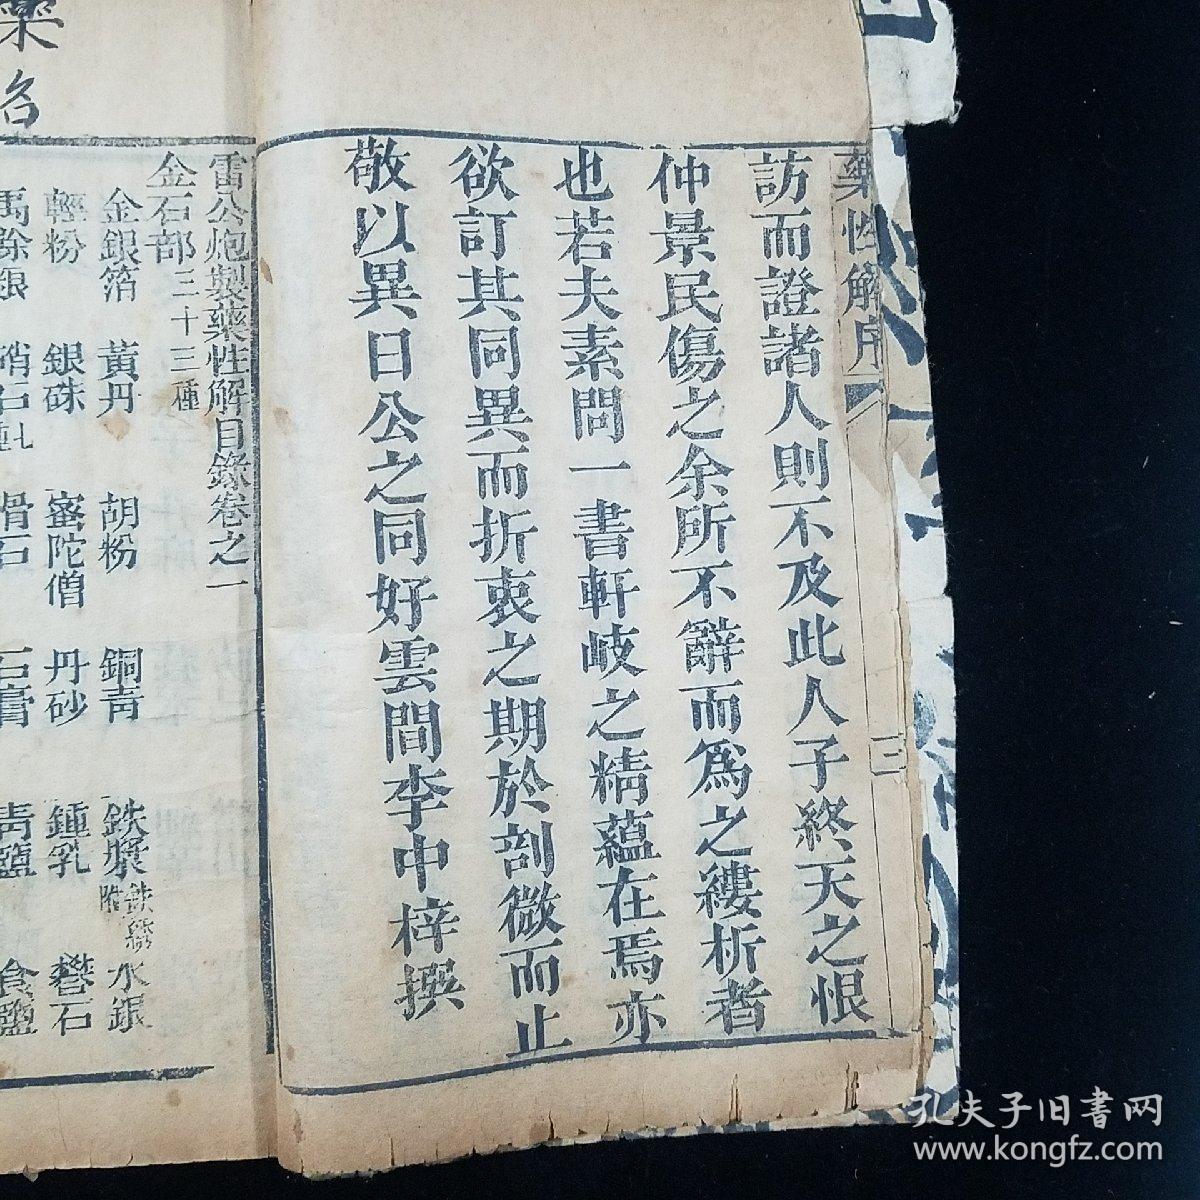 藥性解序
三
訪而證諸人則不及此人子終天之恨
仲景民傷之余所不辭而爲之縷析者
也若夫素問一書軒岐之精蘊在焉亦
欲訂其同異而折衷之期於剖微而止
敬以異日公之同好雲間李中梓撰
雷公炮製藥性解目錄卷之一
金石部三十三種
金銀箔 黃丹 胡粉 銅青 鉄漿 鉄銹附 水銀
輕粉 銀硃 蜜陀僧 丹砂 鍾乳 礬石
禹餘銀 硝石 滑石 石膏 青鹽 食鹽
孔夫子旧書网
www.kongfz.com